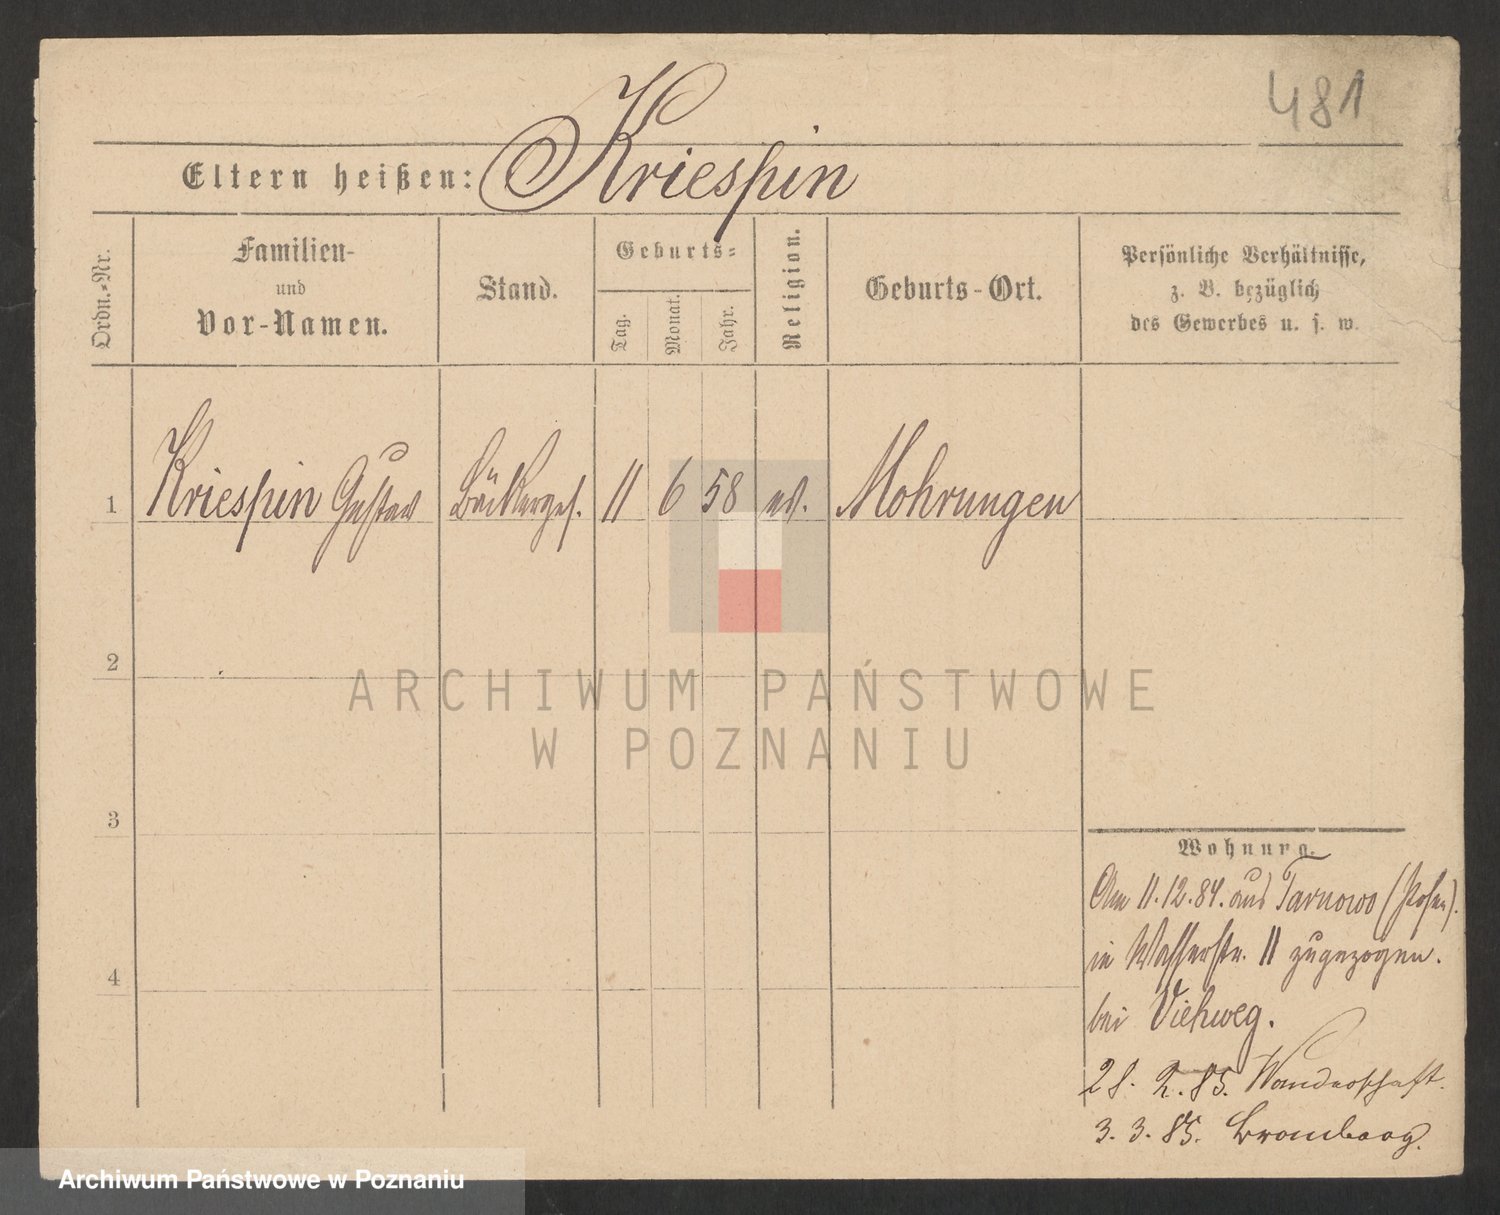 481
Eltern heißen: Kriespin
Ordn.-Nr.
Familien-
und
Vor-Namen.
Stand.
Geburts-
Tag.
Monat.
Jahr.
Religion.
Geburts-Ort.
Persönliche Verhältnisse,
z. B. bezüglich
des Gewerbes u. s. w.
1 Kriespin Gustav Bäckerges. 11 6 58 ev. Mohrungen
2
ARCHIWUM PAŃSTWOWE
W POZNANIU
3
Wohnung.
Am 11.12.84. aus Tarnowo (Posen).
in Wasserstr. 11 zugezogen.
4
bei Viehweg.
28. 2. 85. Wanderschaft.
3. 3. 85. Bromberg.
Archiwum Państwowe w Poznaniu